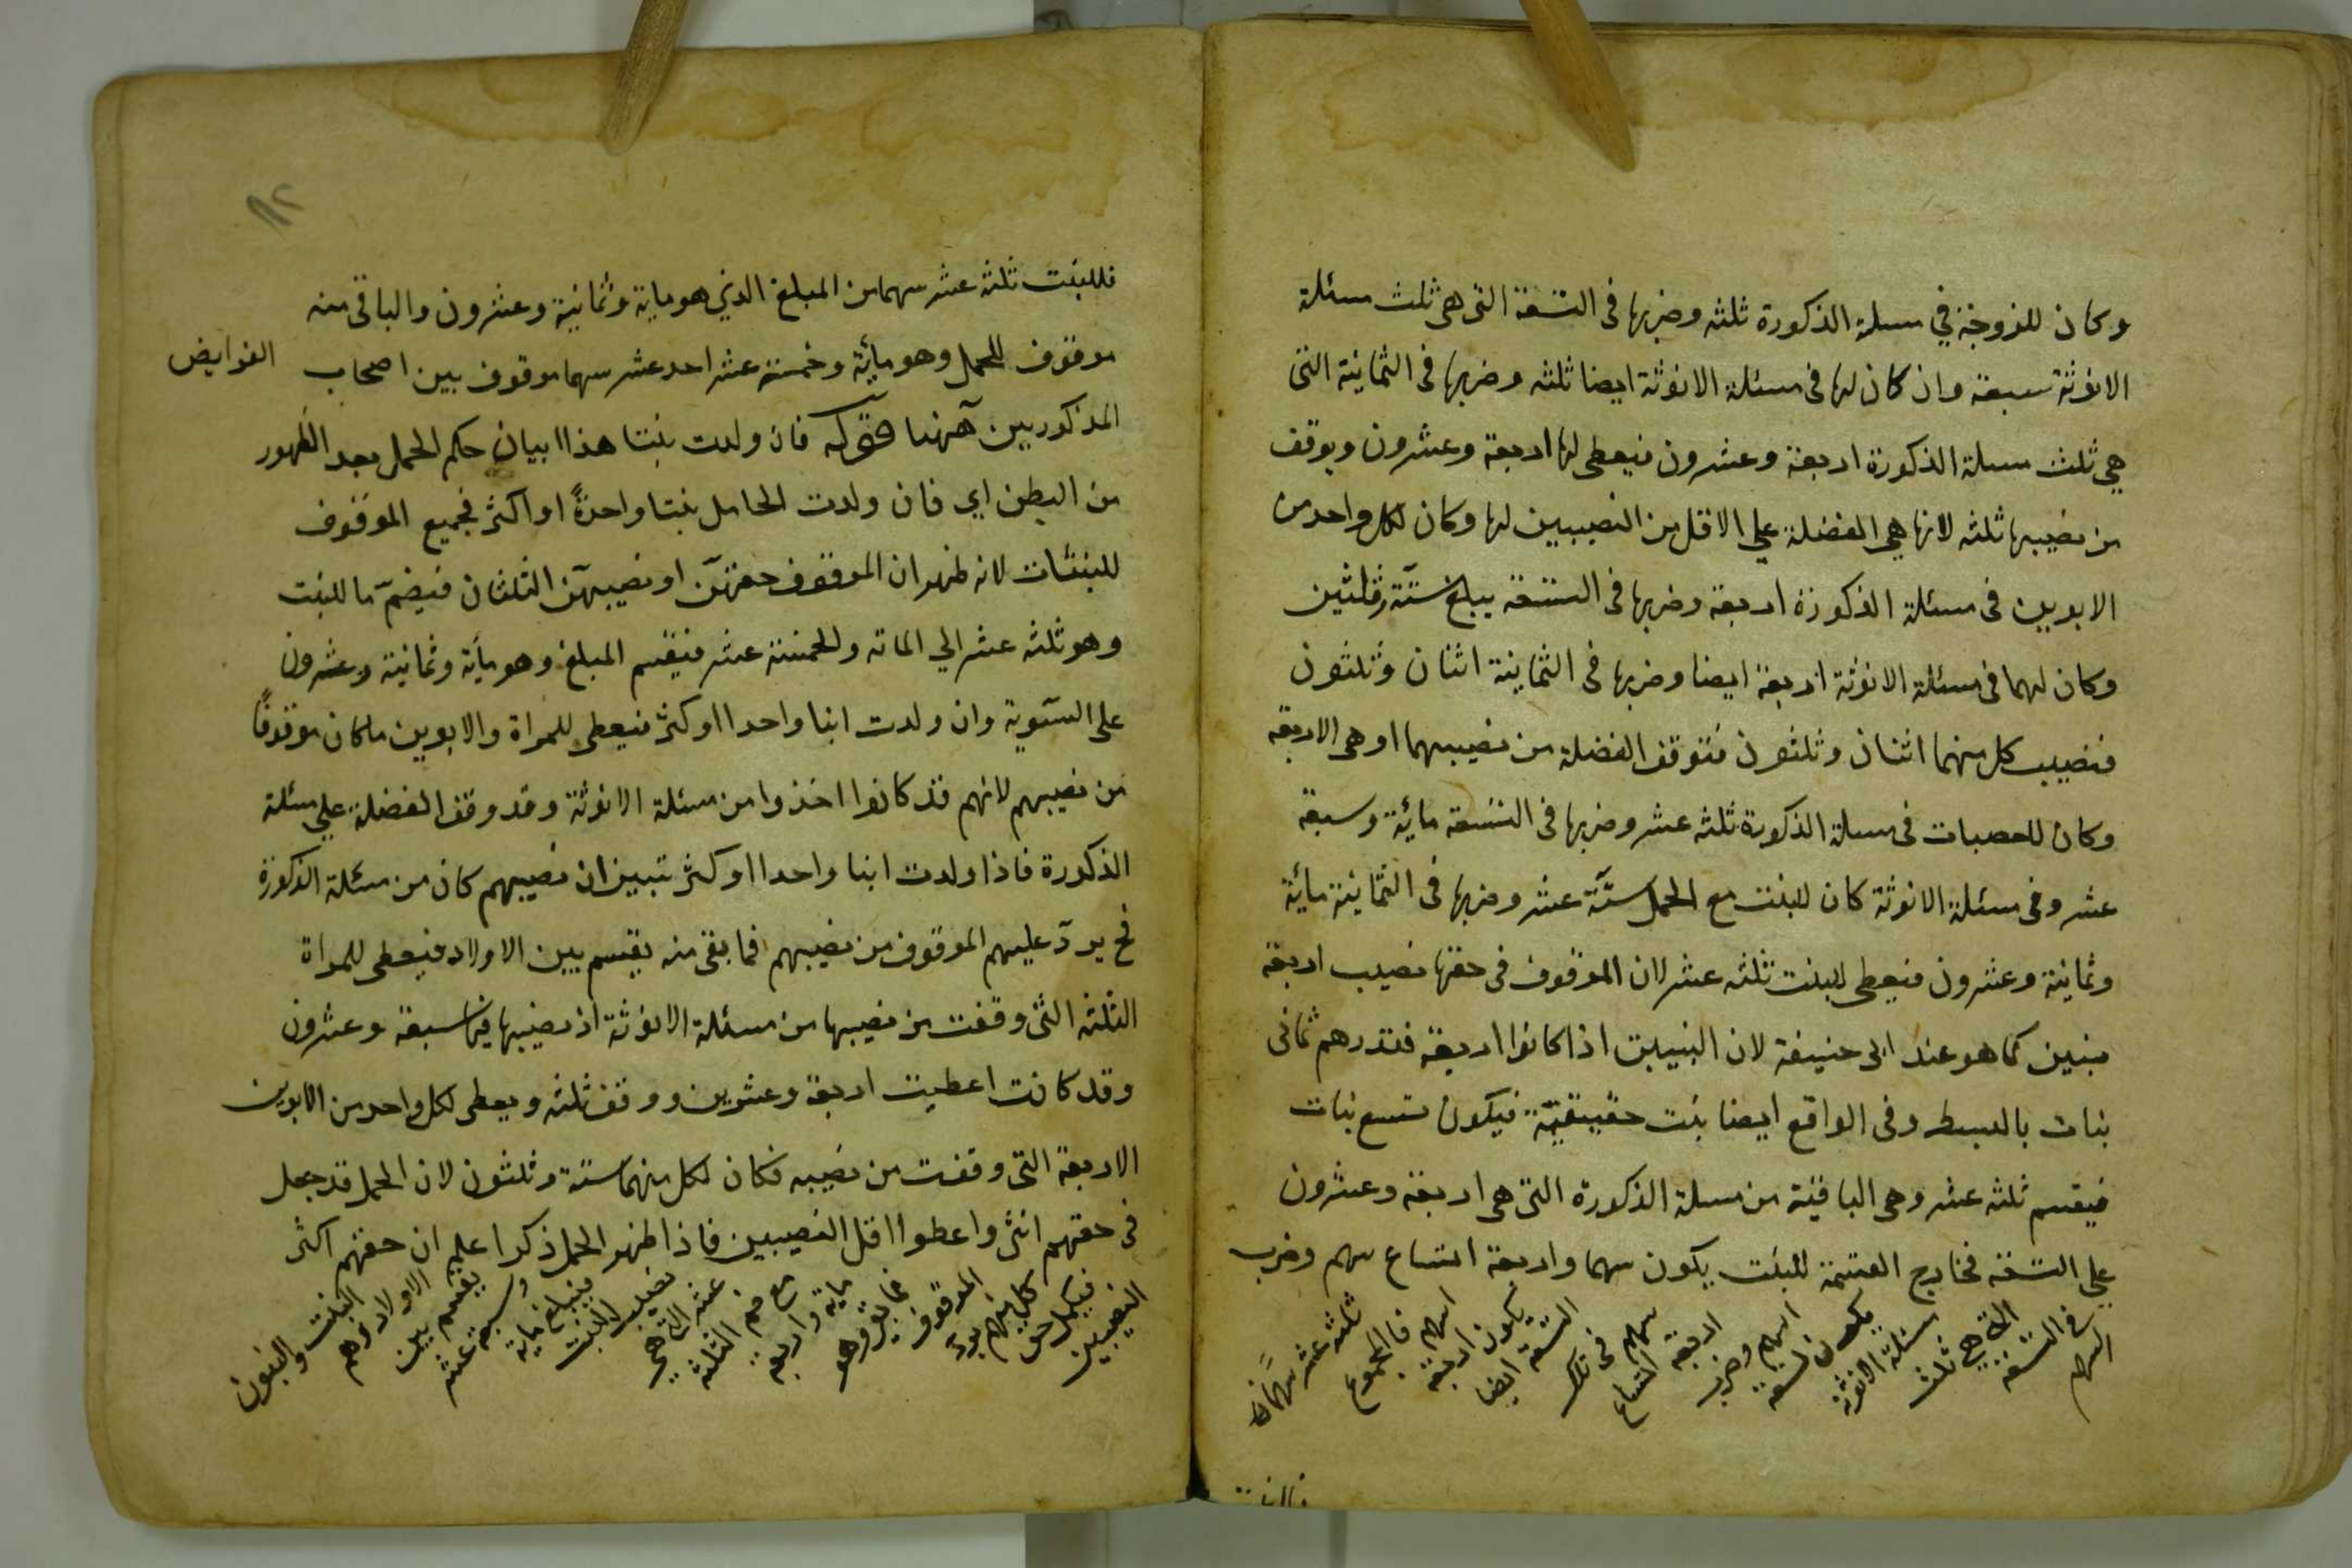 وكان للزوجة في مسلة الذكورة ثلثه وضربها فى التسعة التى هى ثلث مسئلة
الانوثة سبعة وان كان لها فى مسئلة الانوثة ايضا ثلثه وضربها فى الثمانية التى
هي ثلث مسلة الذكورة اربعة وعشرون فيعطى لها اربعة وعشرون ويوقف
من نصيبها ثلثه لانها هي الفضلة علي الاقل من النصيبين لها وكان لكل واحد من
الابوين فى مسئلة الذكورة اربعة وضربها فى التسعة يبلغ ستة وثلثين
وكان لهما فى مسئلة الانوثة اربعة ايضا وضربها فى الثمانية اثنان وثلثون
فنصيب كل منهما اثنان وثلثون فتوقف الفضلة من نصيبهما او هى الاربعة
وكان للعصبات فى مسلة الذكورة ثلثه عشر وضربها فى التسعة مائة وسبعة
عشر وفى مسئلة الانوثة كان للبنت مع الحمل ستة عشر وضربها فى الثمانية مائة
وثمانية وعشرون فيعطى للبنت ثلثه عشر لان الموقوف فى حقها نصيب اربعة
بنين كما هو عند ابى حنيفة لان البنين اذا كانوا اربعة فتدرهم ثمانى
بنات بالبسط وفى الواقع ايضا بنت حقيقية فيكون تسع بنات
فيقسم ثلثه عشر وهى الباقية من مسلة الذكورة التى هى اربعة وعشرون
علي التسعة فخارج القسمة للبنت يكون سهما واربعة اتساع سهم وضرب
السهم
فى التسعة
التى هى ثلث
مسئلة الانوثة
يكون تسعة
اسهم وضرب
اربعة اتساع
سهم فى تلك
التسعة ايضا
يكون اربعة
اسهم فالمجموع
ثلثه عشر سهما
فللبنت
١١٢
فللبنت ثلثه عشر سهما من المبلغ الذي هو ماية وثمانية وعشرون والباقى منه
موقوف للحمل وهو مائة وخمسة عشر احد عشر سهما موقوف بين اصحاب الفرايض
المذكورين آهنا قوله فان ولدت بنتا هذا بيان حكم الحمل بعد الظهور
من البطن اي فان ولدت الحامل بنتا واحدة او اكثر فجميع الموقوف
للبنتات لانه ظهر ان الموقوف حقهن او نصيبهن الثلثان فيضم ما للبنت
وهو ثلثه عشر الي الماته والخمسة عشر فيقسم المبلغ وهو مائة وثمانية وعشرون
على السوية وان ولدت ابنا واحدا او كثر فيعطى للمراة والابوين ما كان موقوفا
من نصيبهم لانهم قد كانوا اخذوا من مسئلة الانوثة وقد وقف الفضلة علي مسئلة
الذكورة فاذا ولدت ابنا واحدا او كثر تبين ان نصيبهم كان من مسئلة الذكورة
فح يرد عليهم الموقوف من نصيبهم فما بقى منه يقسم بين الاولاد فيعطى للمراة
الثلثه التى وقفت من نصيبها من مسئلة الانوثة اذ نصيبها فيها سبعة وعشرون
وقد كانت اعطيت اربعة وعشرين ووقف ثلثه ويعطى لكل واحد من الابوين
الاربعة التى وقفت من نصيبه فكان لكل منهما ستة وثلثون لان الحمل قد جعل
فى حقهم انثى واعطوا اقل النصيبين فاذا ظهر الحمل ذكرا علم ان حقهم اكثر
النصيبين
فيكمل حق
كل منهم
الموقوف
فما بقى وهو
ماية واربعة
مع ضم الثلثه
عشر التى هى
نصيب البنت
فيبلغ ماية
وسبعة عشر
يقسم بين
الاولاد وهم
البنت والبنون